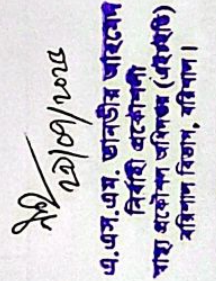 ২১/০৭/২০২৪
এ.এস.এম. তানভীর আহমেদ
নির্বাহী প্রকৌশলী
স্বাস্থ্য প্রকৌশল অধিদপ্তর (এইচইডি)
বরিশাল বিভাগ, বরিশাল।